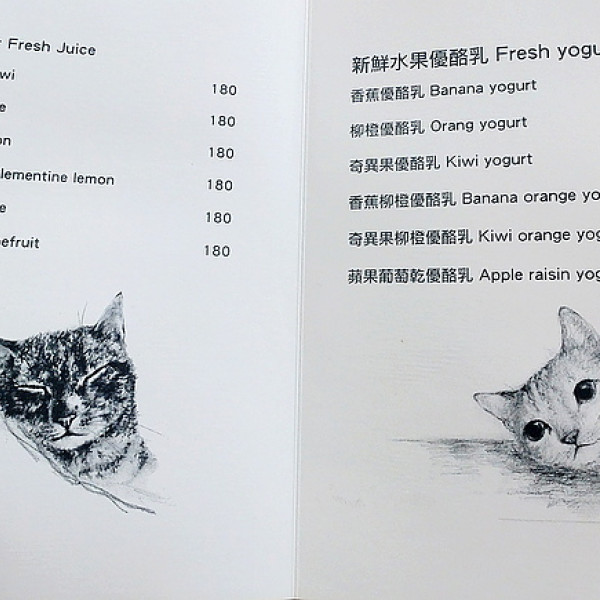 Fresh Juice
180
180
180
lemon 180
180
180
新鮮水果優酪乳 Fresh
香蕉優酪乳 Banana yogurt
柳橙優酪乳 Orang yogurt
奇異果優酪乳 Kiwi yogurt
香蕉柳橙優酪乳 Banana orange
奇異果柳橙優酪乳 Kiwi orange
蘋果葡萄乾優酪乳 Apple raisin